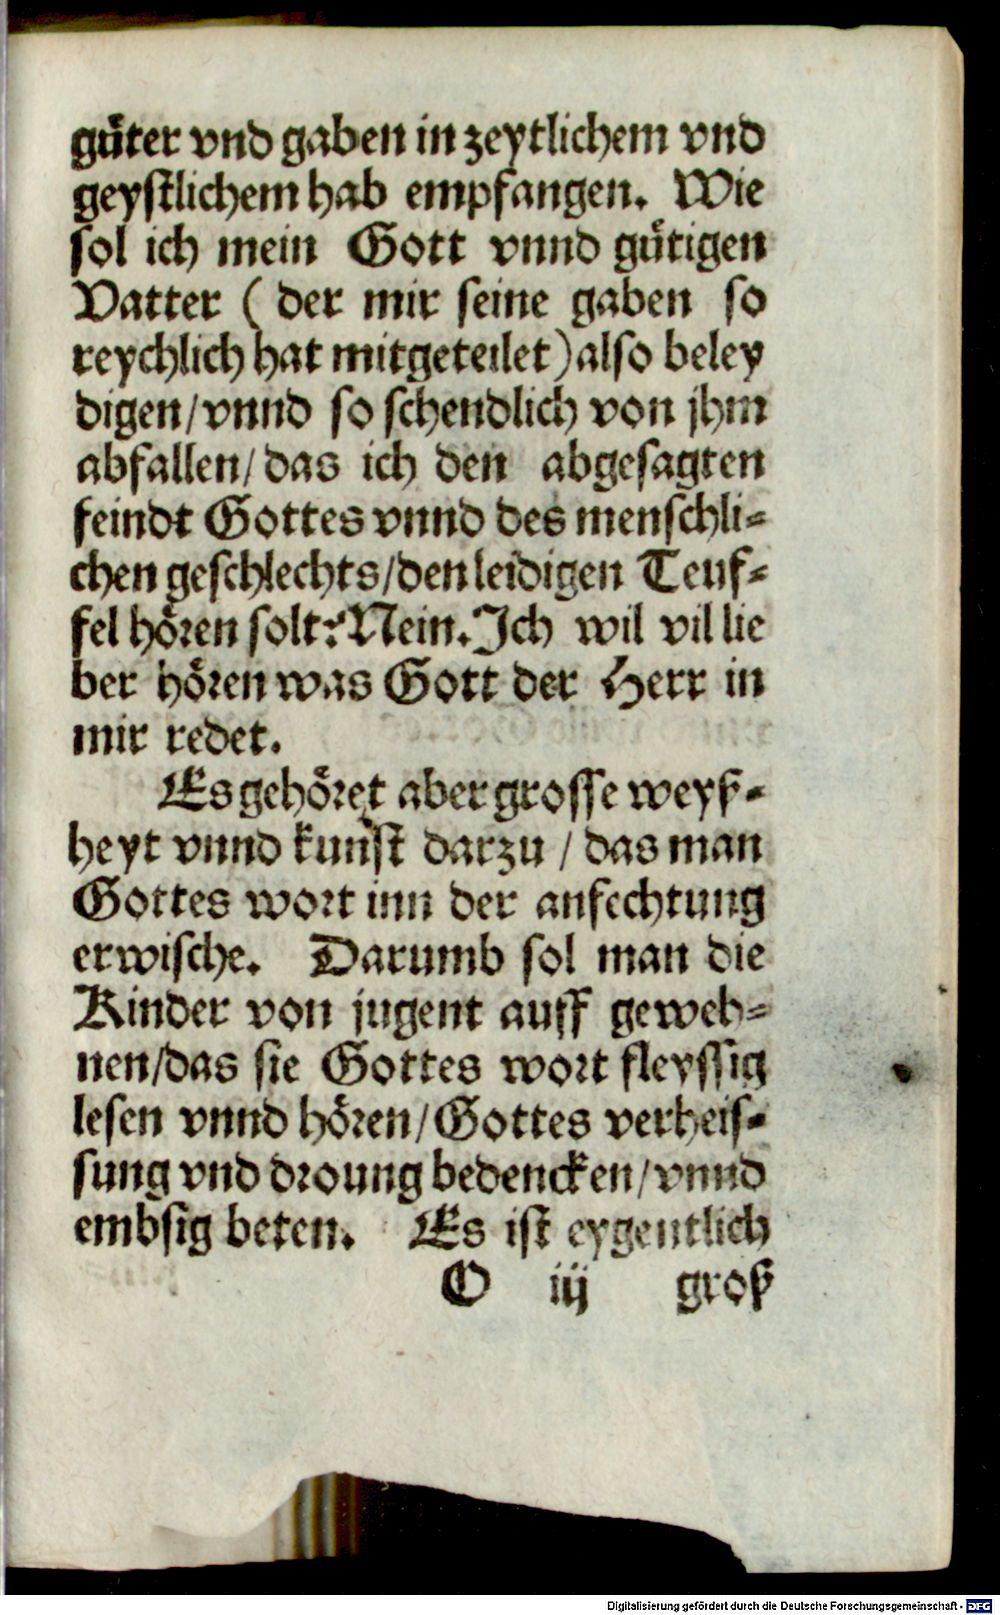 güter vnd gaben in zeytlichem vnd
geystlichem hab empfangen. Wie
sol ich mein Gott vnnd gütigen
Vatter ( der mir seine gaben so
reychlich hat mitgeteilet) also beley
digen/vnnd so schendlich von jhm
abfallen/das ich den abgesagten
feindt Gottes vnnd des menschli-
chen geschlechts/den leidigen Teuf-
fel hören solt? Nein. Ich wil vil lie
ber hören was Gott der Herr in
mir redet.
Es gehöret aber grosse weyß-
heyt vnnd kunst darzu / das man
Gottes wort inn der anfechtung
erwische. Darumb sol man die
Kinder von jugent auff geweh-
nen/das sie Gottes wort fleyssig
lesen vnnd hören/Gottes verheis-
sung vnd droung bedencken/vnnd
embsig beten. Es ist eygentlich
O iij groß
Digitalisierung gefördert durch die Deutsche Forschungsgemeinschaft - DFG